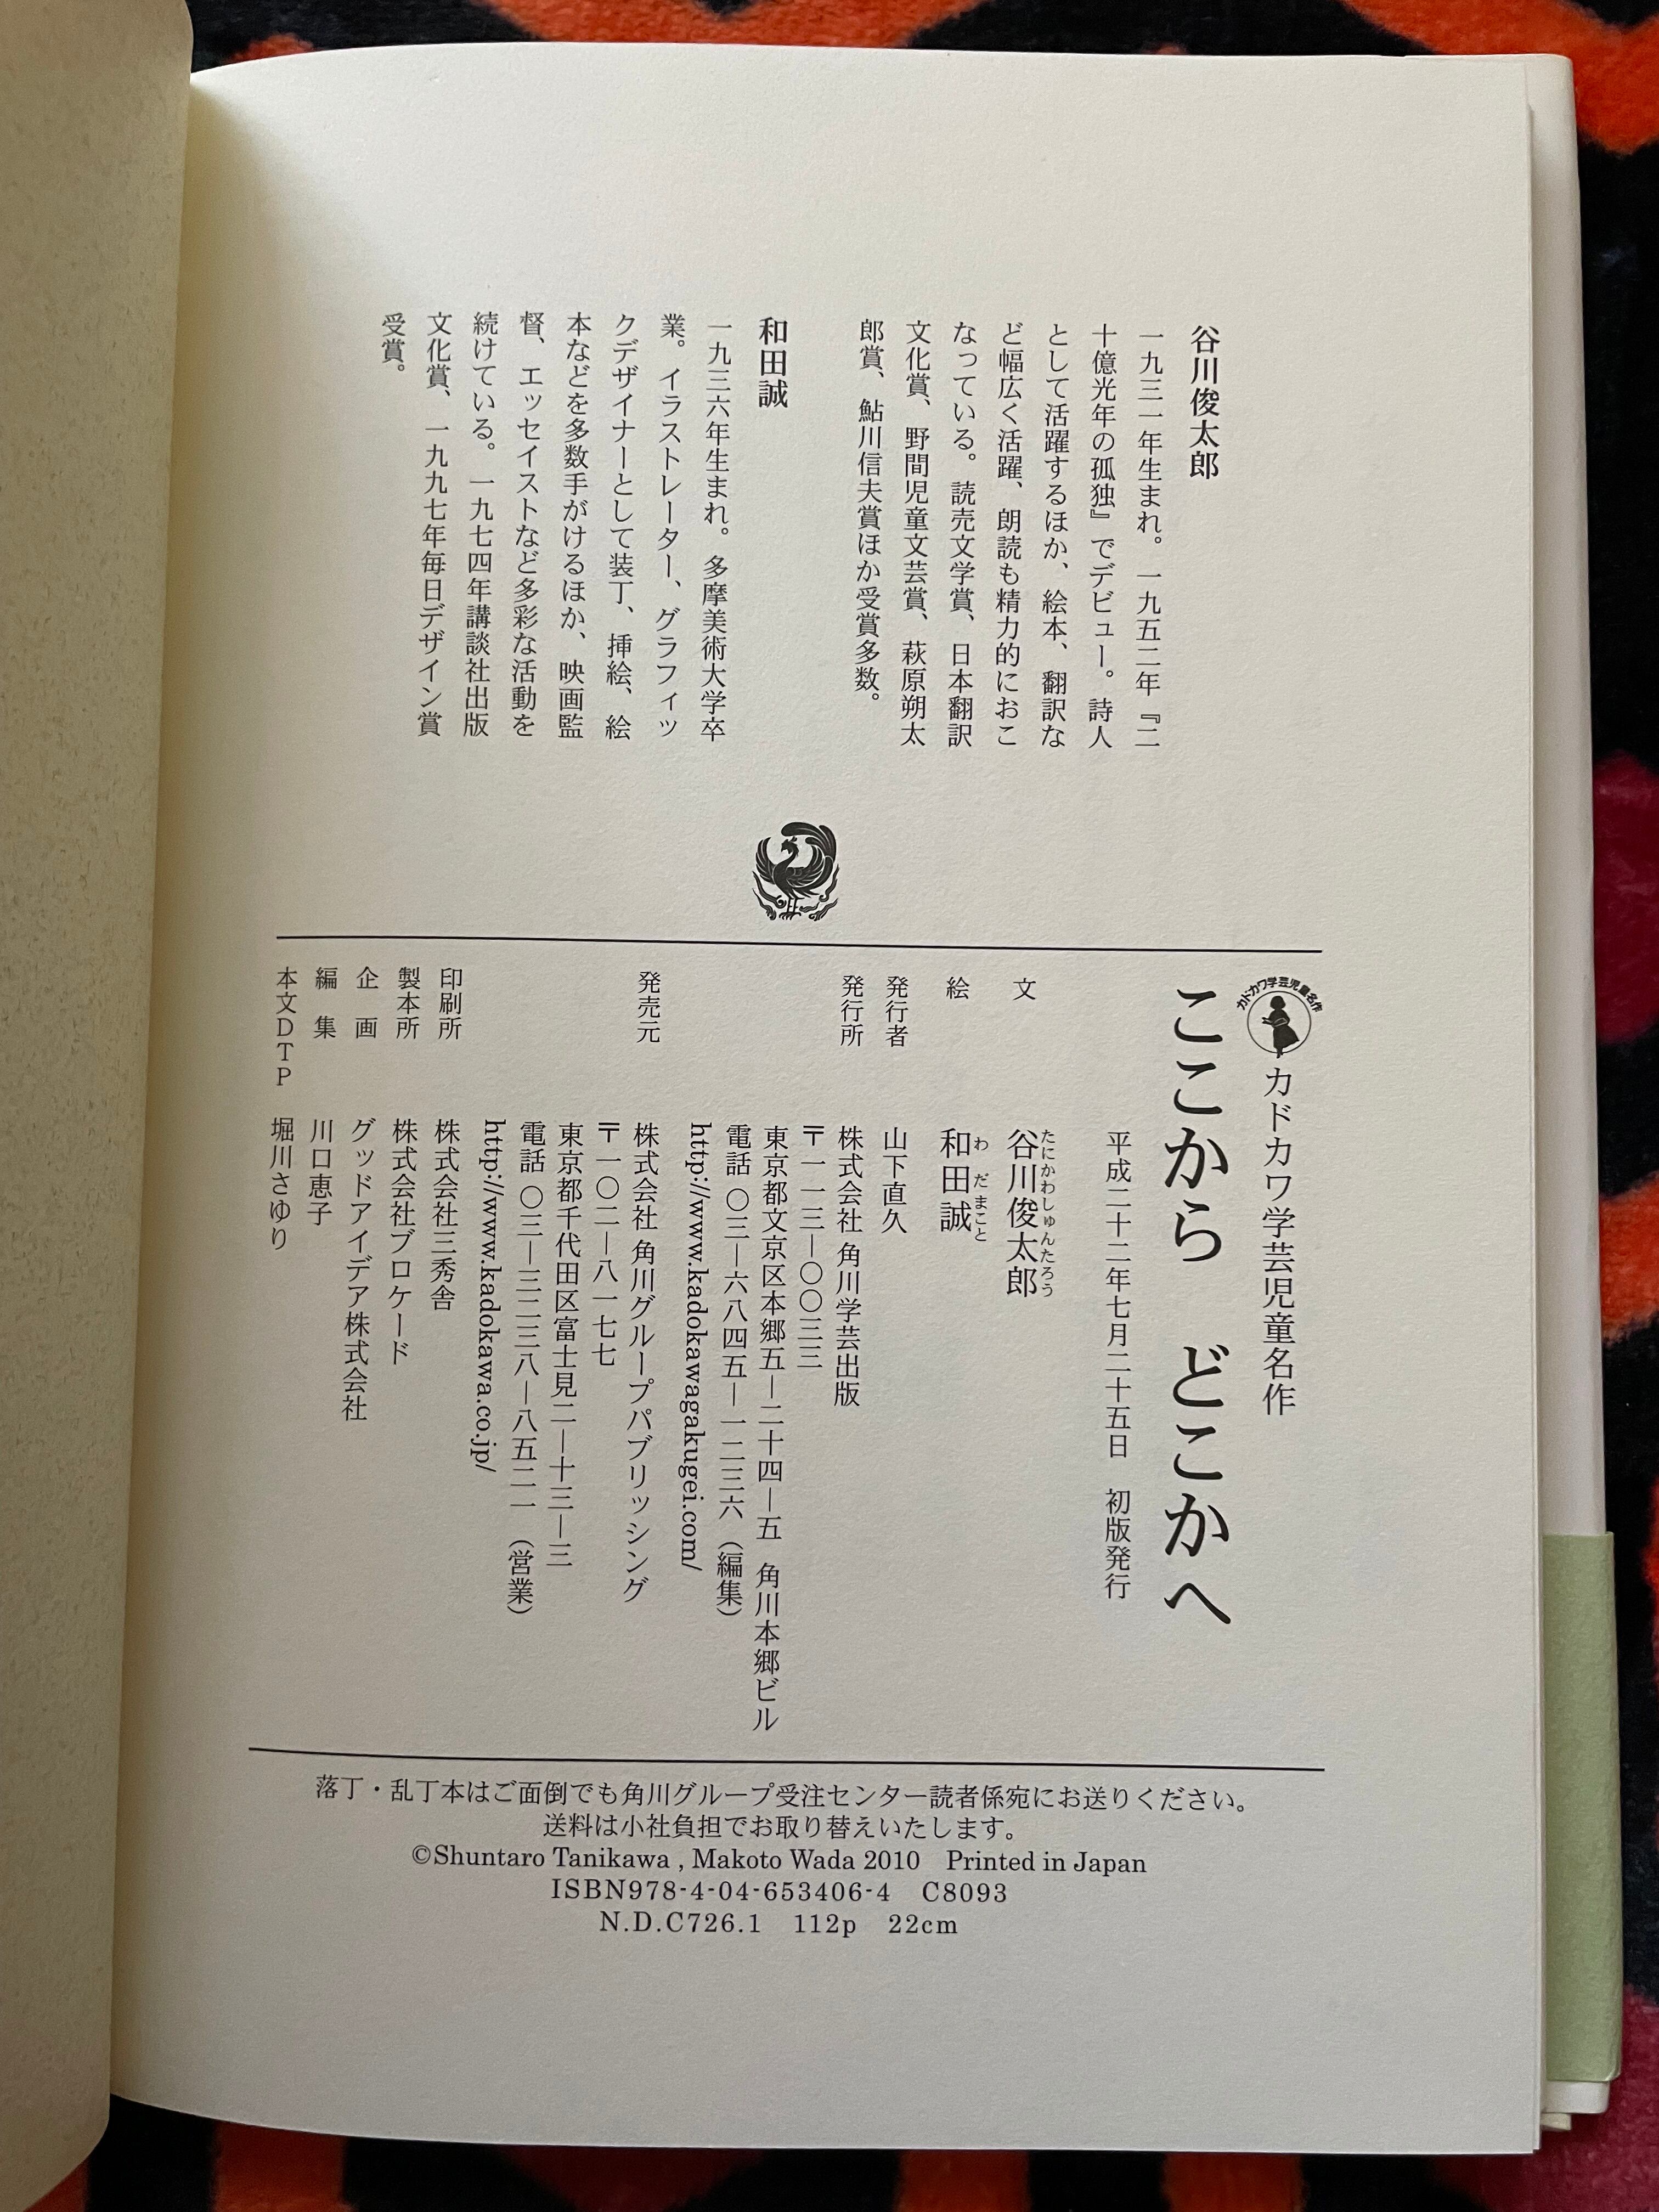 谷川俊太郎
一九三一年生まれ。一九五二年『二
十億光年の孤独』でデビュー。詩人
として活躍するほか、絵本、翻訳な
ど幅広く活躍、朗読も精力的におこ
なっている。読売文学賞、日本翻訳
文化賞、野間児童文芸賞、萩原朔太
郎賞、鮎川信夫賞ほか受賞多数。
和田誠
一九三六年生まれ。多摩美術大学卒
業。イラストレーター、グラフィッ
クデザイナーとして装丁、挿絵、絵
本などを多数手がけるほか、映画監
督、エッセイストなど多彩な活動を
続けている。一九七四年講談社出版
文化賞、一九九七年毎日デザイン賞
受賞。
カドカワ学芸児童名作
カドカワ学芸児童名作
ここから どこかへ
平成二十二年七月二十五日 初版発行
文 谷川俊太郎
たにかわしゅんたろう
絵 和田誠
わだまこと
発行者 山下直久
発行所 株式会社 角川学芸出版
〒一一三―〇〇三三
東京都文京区本郷五―二十四―五 角川本郷ビル
電話 〇三―六八四五―一二三六(編集)
http://www.kadokawagakugei.com/
発売元 株式会社 角川グループパブリッシング
〒一〇二―八一七七
東京都千代田区富士見二―十三―三
電話 〇三―三二三八―八五二一(営業)
http://www.kadokawa.co.jp/
印刷所 株式会社三秀舎
製本所 株式会社ブロケード
企画 グッドアイデア株式会社
編集 川口恵子
本文DTP 堀川さゆり
落丁・乱丁本はご面倒でも角川グループ受注センター読者係宛にお送りください。
送料は小社負担でお取り替えいたします。
©Shuntaro Tanikawa , Makoto Wada 2010 Printed in Japan
ISBN978-4-04-653406-4 C8093
N.D.C726.1 112p 22cm